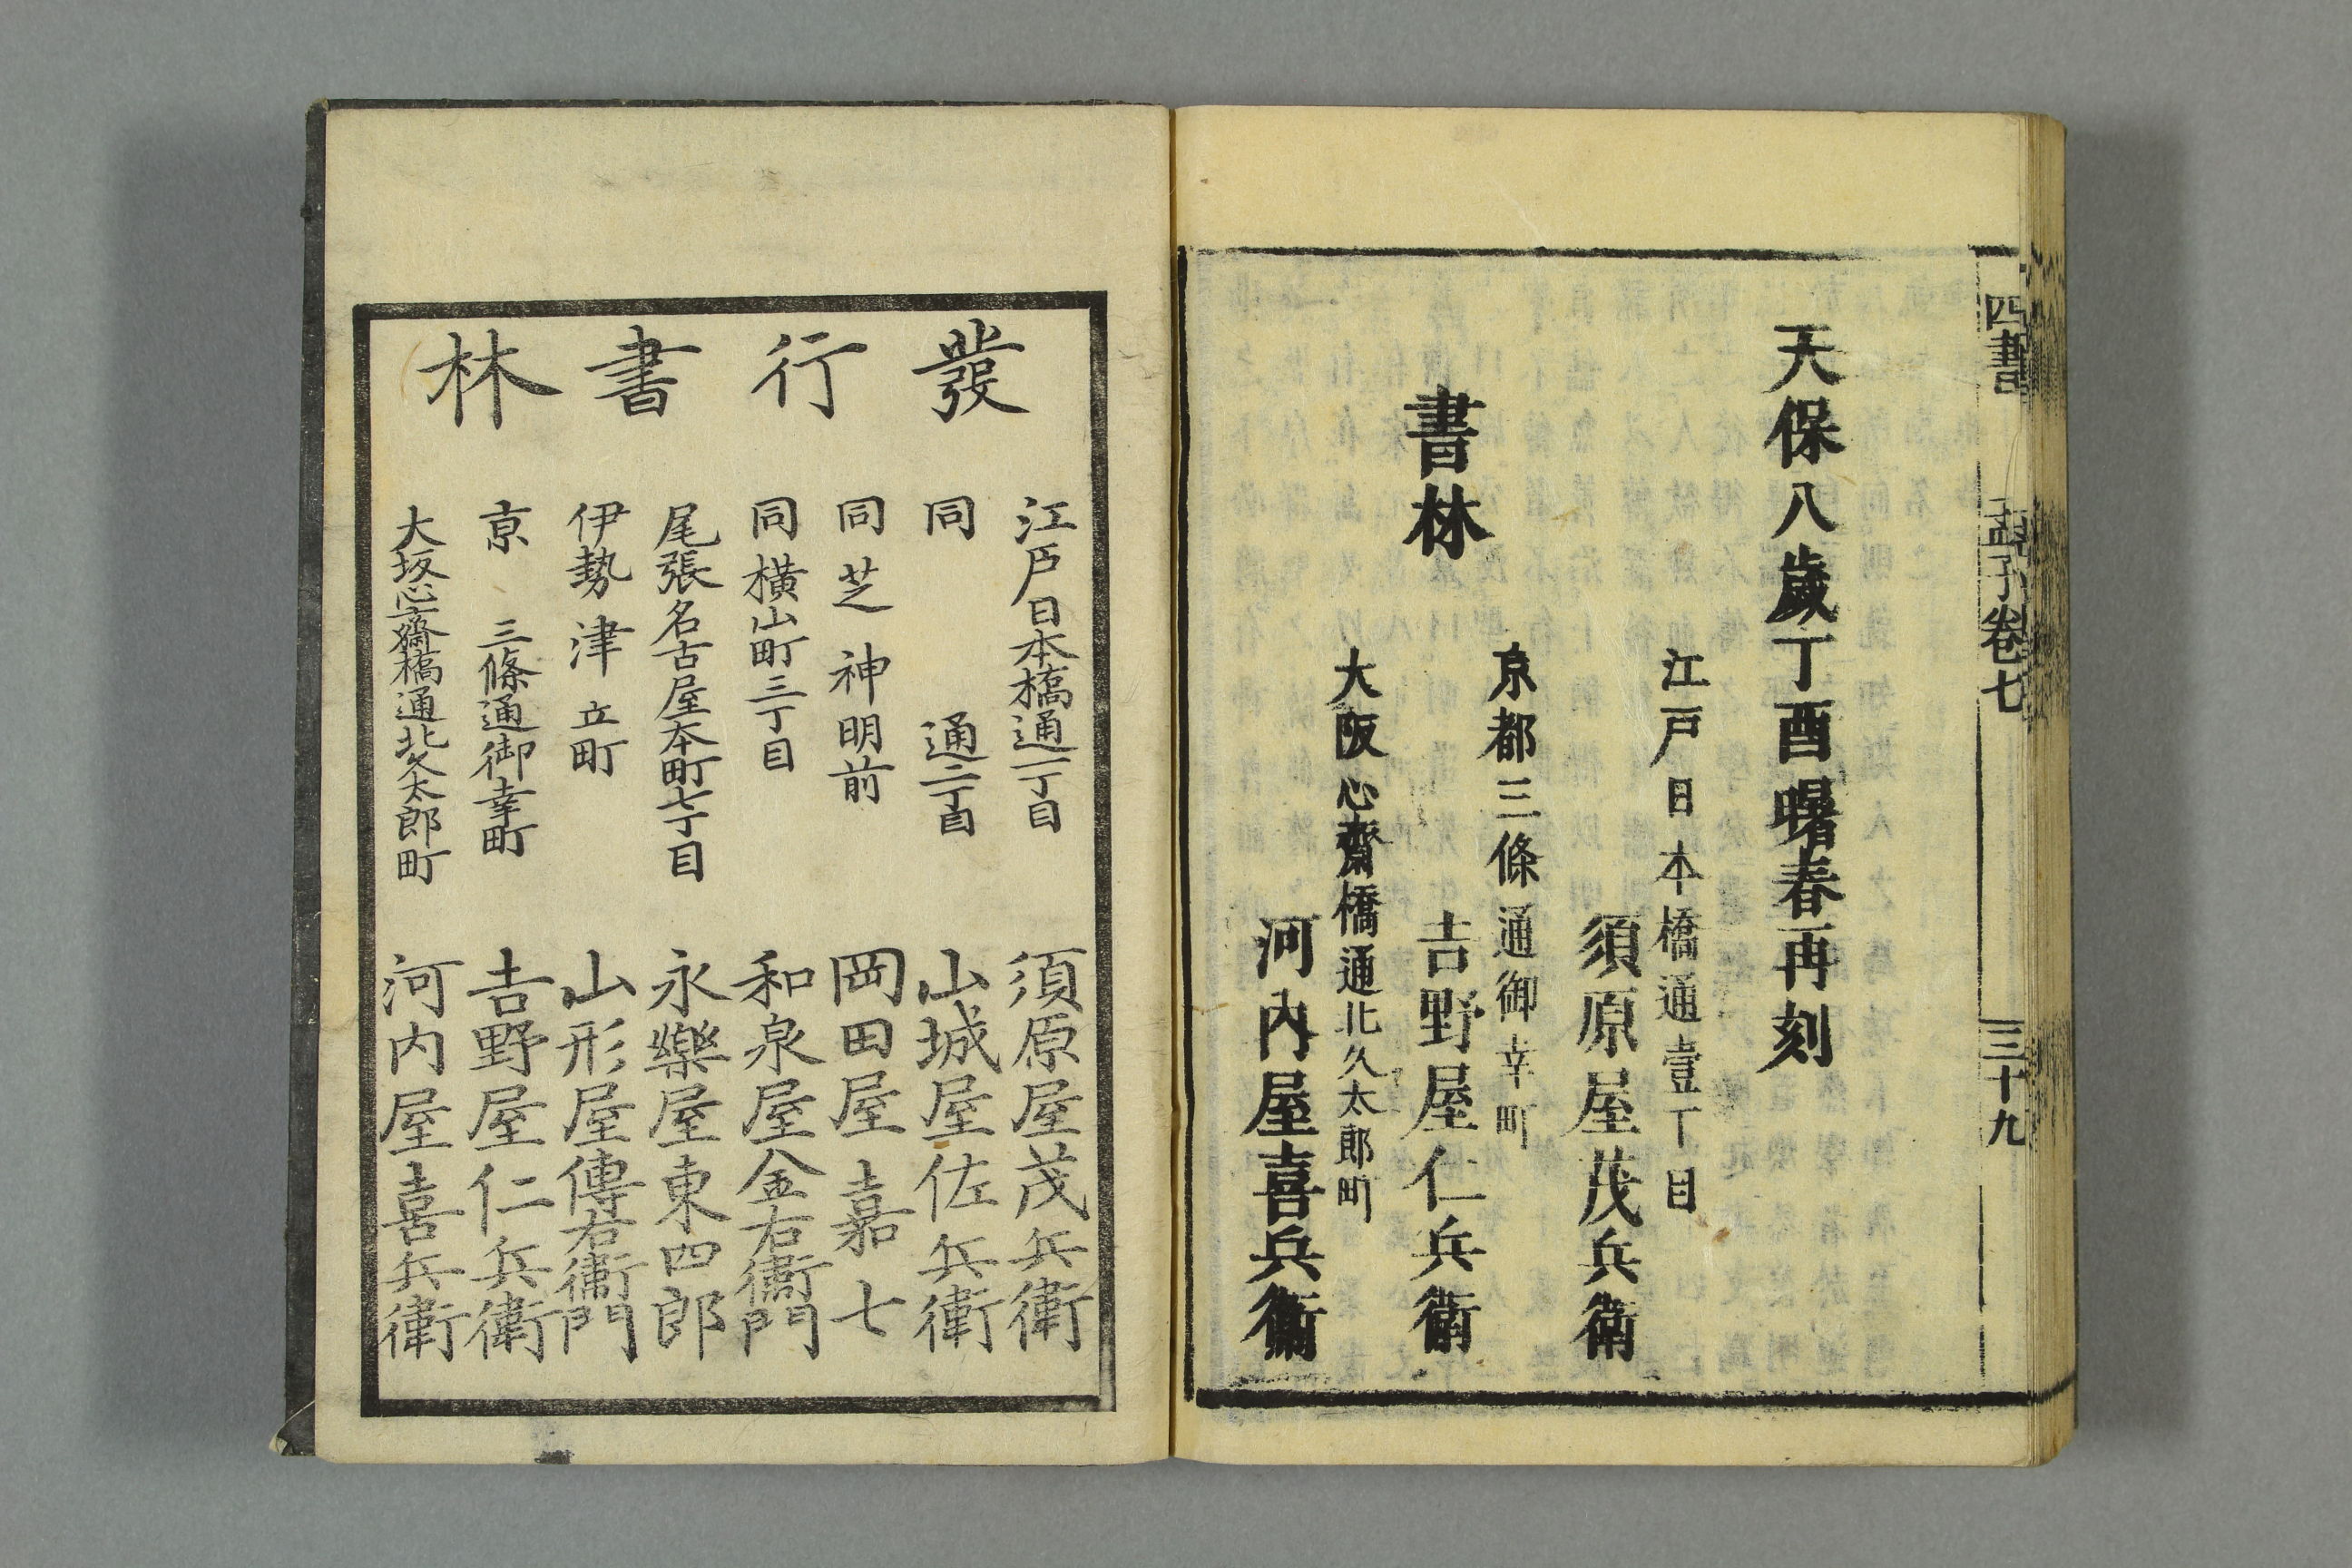 四書 孟子卷七 三十九
天保八歲丁酉曙春再刻
江戸日本橋通壹丁目
須原屋茂兵衛
京都三條通御幸町
書林
吉野屋仁兵衛
大阪心齋橋通北久太郎町
河内屋喜兵衛
發行書林
江戸日本橋通一丁目 須原屋茂兵衛
同 通二丁目 山城屋佐兵衛
同芝神明前 岡田屋嘉七
同橫山町三丁目 和泉屋金右衛門
尾張名古屋本町七丁目 永樂屋東四郎
伊勢津立町 山形屋傳右衛門
京 三條通御幸町 吉野屋仁兵衛
大坂心齋橋通北久太郎町 河内屋喜兵衛